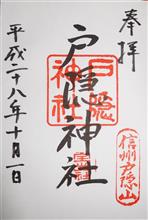 奉拝
戸隠神社
戸隠
神社
信州戸隠山
平成二十八年十月一日